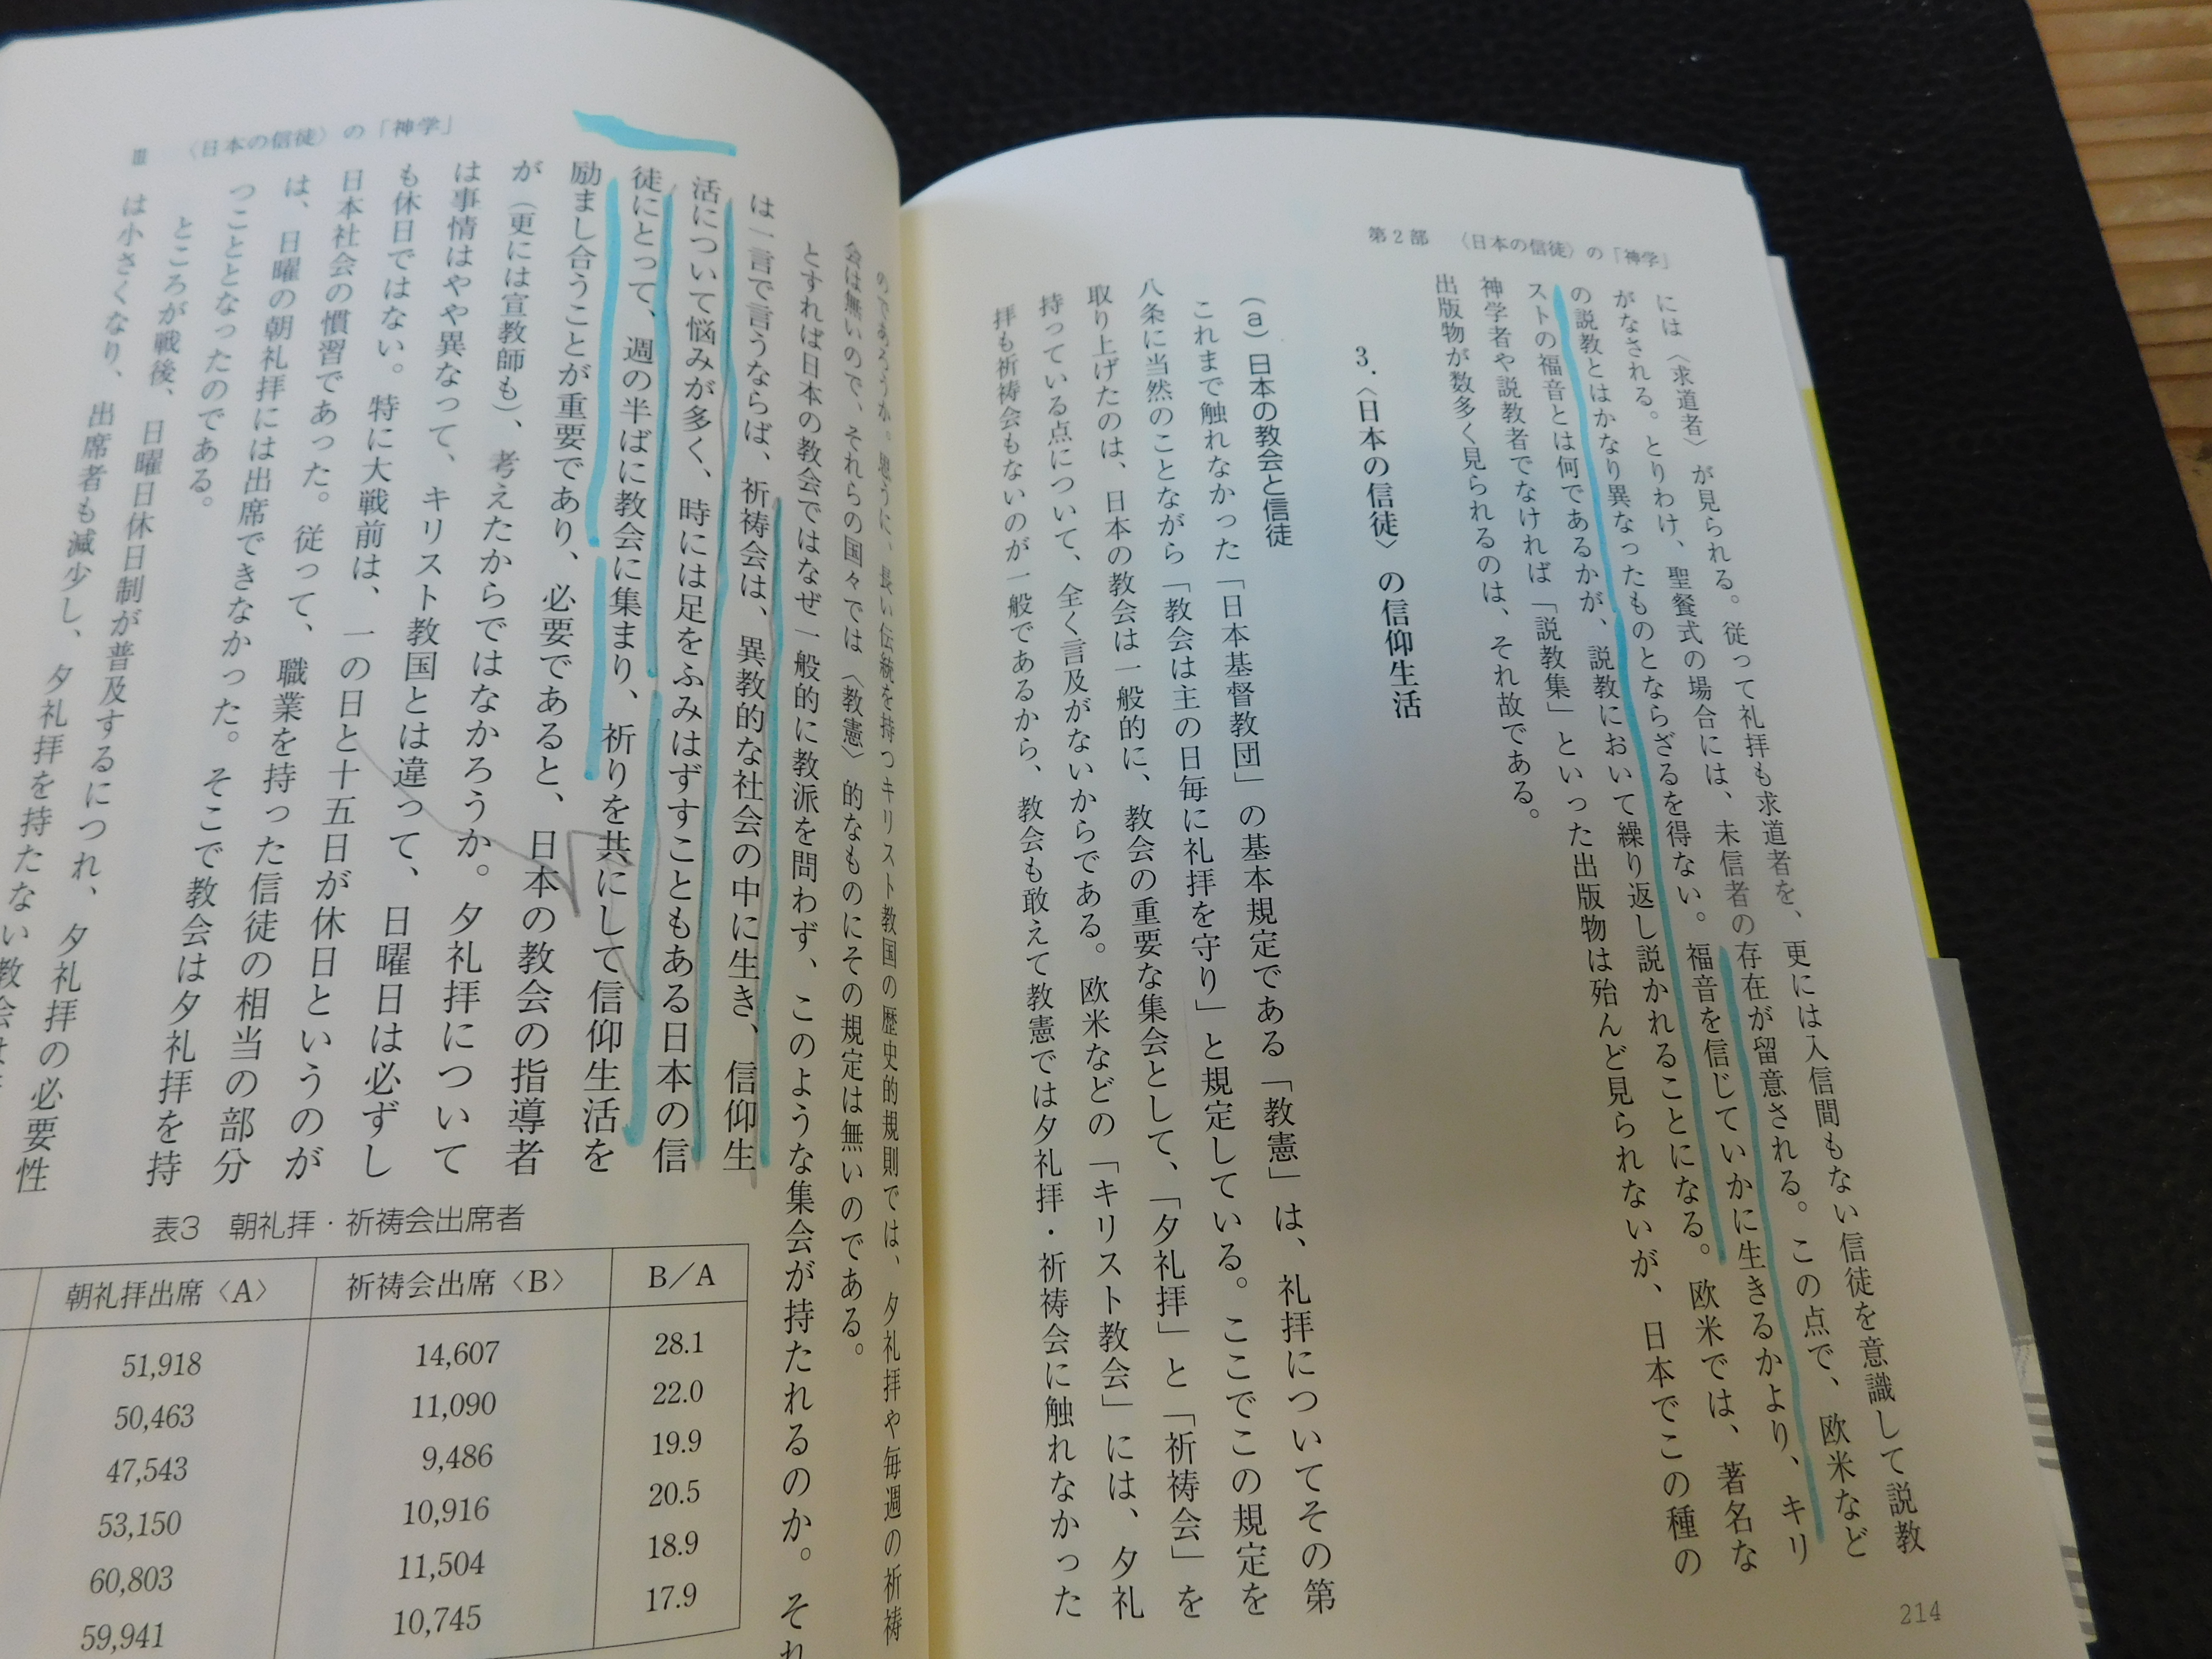 第2部　〈日本の信徒〉の「神学」
には〈求道者〉が見られる。従って礼拝も求道者を、更には入信間もない信徒を意識して説教
がなされる。とりわけ、聖餐式の場合には、未信者の存在が留意される。この点で、欧米など
の説教とはかなり異なったものとならざるを得ない。福音を信じていかに生きるかより、キリ
ストの福音とは何であるかが、説教において繰り返し説かれることになる。欧米では、著名な
神学者や説教者でなければ「説教集」といった出版物は殆んど見られないが、日本でこの種の
出版物が数多く見られるのは、それ故である。
3．〈日本の信徒〉の信仰生活
(a) 日本の教会と信徒
これまで触れなかった「日本基督教団」の基本規定である「教憲」は、礼拝についてその第
八条に当然のことながら「教会は主の日毎に礼拝を守り」と規定している。ここでこの規定を
取り上げたのは、日本の教会は一般的に、教会の重要な集会として、「夕礼拝」と「祈祷会」を
持っている点について、全く言及がないからである。欧米などの「キリスト教会」には、夕礼
拝も祈祷会もないのが一般であるから、教会も敢えて教憲では夕礼拝・祈祷会に触れなかった
214
Ⅲ　〈日本の信徒〉の「神学」
のであろうか。思うに、長い伝統を持つキリスト教国の歴史的規則では、夕礼拝や毎週の祈祷
会は無いので、それらの国々では〈教憲〉的なものにその規定は無いのである。
とすれば日本の教会ではなぜ一般的に教派を問わず、このような集会が持たれるのか。それ
は一言で言うならば、祈祷会は、異教的な社会の中に生き、信仰生
活について悩みが多く、時には足をふみはずすこともある日本の信
徒にとって、週の半ばに教会に集まり、祈りを共にして信仰生活を
励まし合うことが重要であり、必要であると、日本の教会の指導者
が（更には宣教師も）、考えたからではなかろうか。夕礼拝について
は事情はやや異なって、キリスト教国とは違って、日曜日は必ずし
も休日ではない。特に大戦前は、一の日と十五日が休日というのが
日本社会の慣習であった。従って、職業を持った信徒の相当の部分
は、日曜の朝礼拝には出席できなかった。そこで教会は夕礼拝を持
つこととなったのである。
ところが戦後、日曜日休日制が普及するにつれ、夕礼拝の必要性
は小さくなり、出席者も減少し、夕礼拝を持たない教会は
表3　朝礼拝・祈祷会出席者
朝礼拝出席〈A〉　祈祷会出席〈B〉　B／A
51,918　14,607　28.1
50,463　11,090　22.0
47,543　9,486　19.9
53,150　10,916　20.5
60,803　11,504　18.9
59,941　10,745　17.9